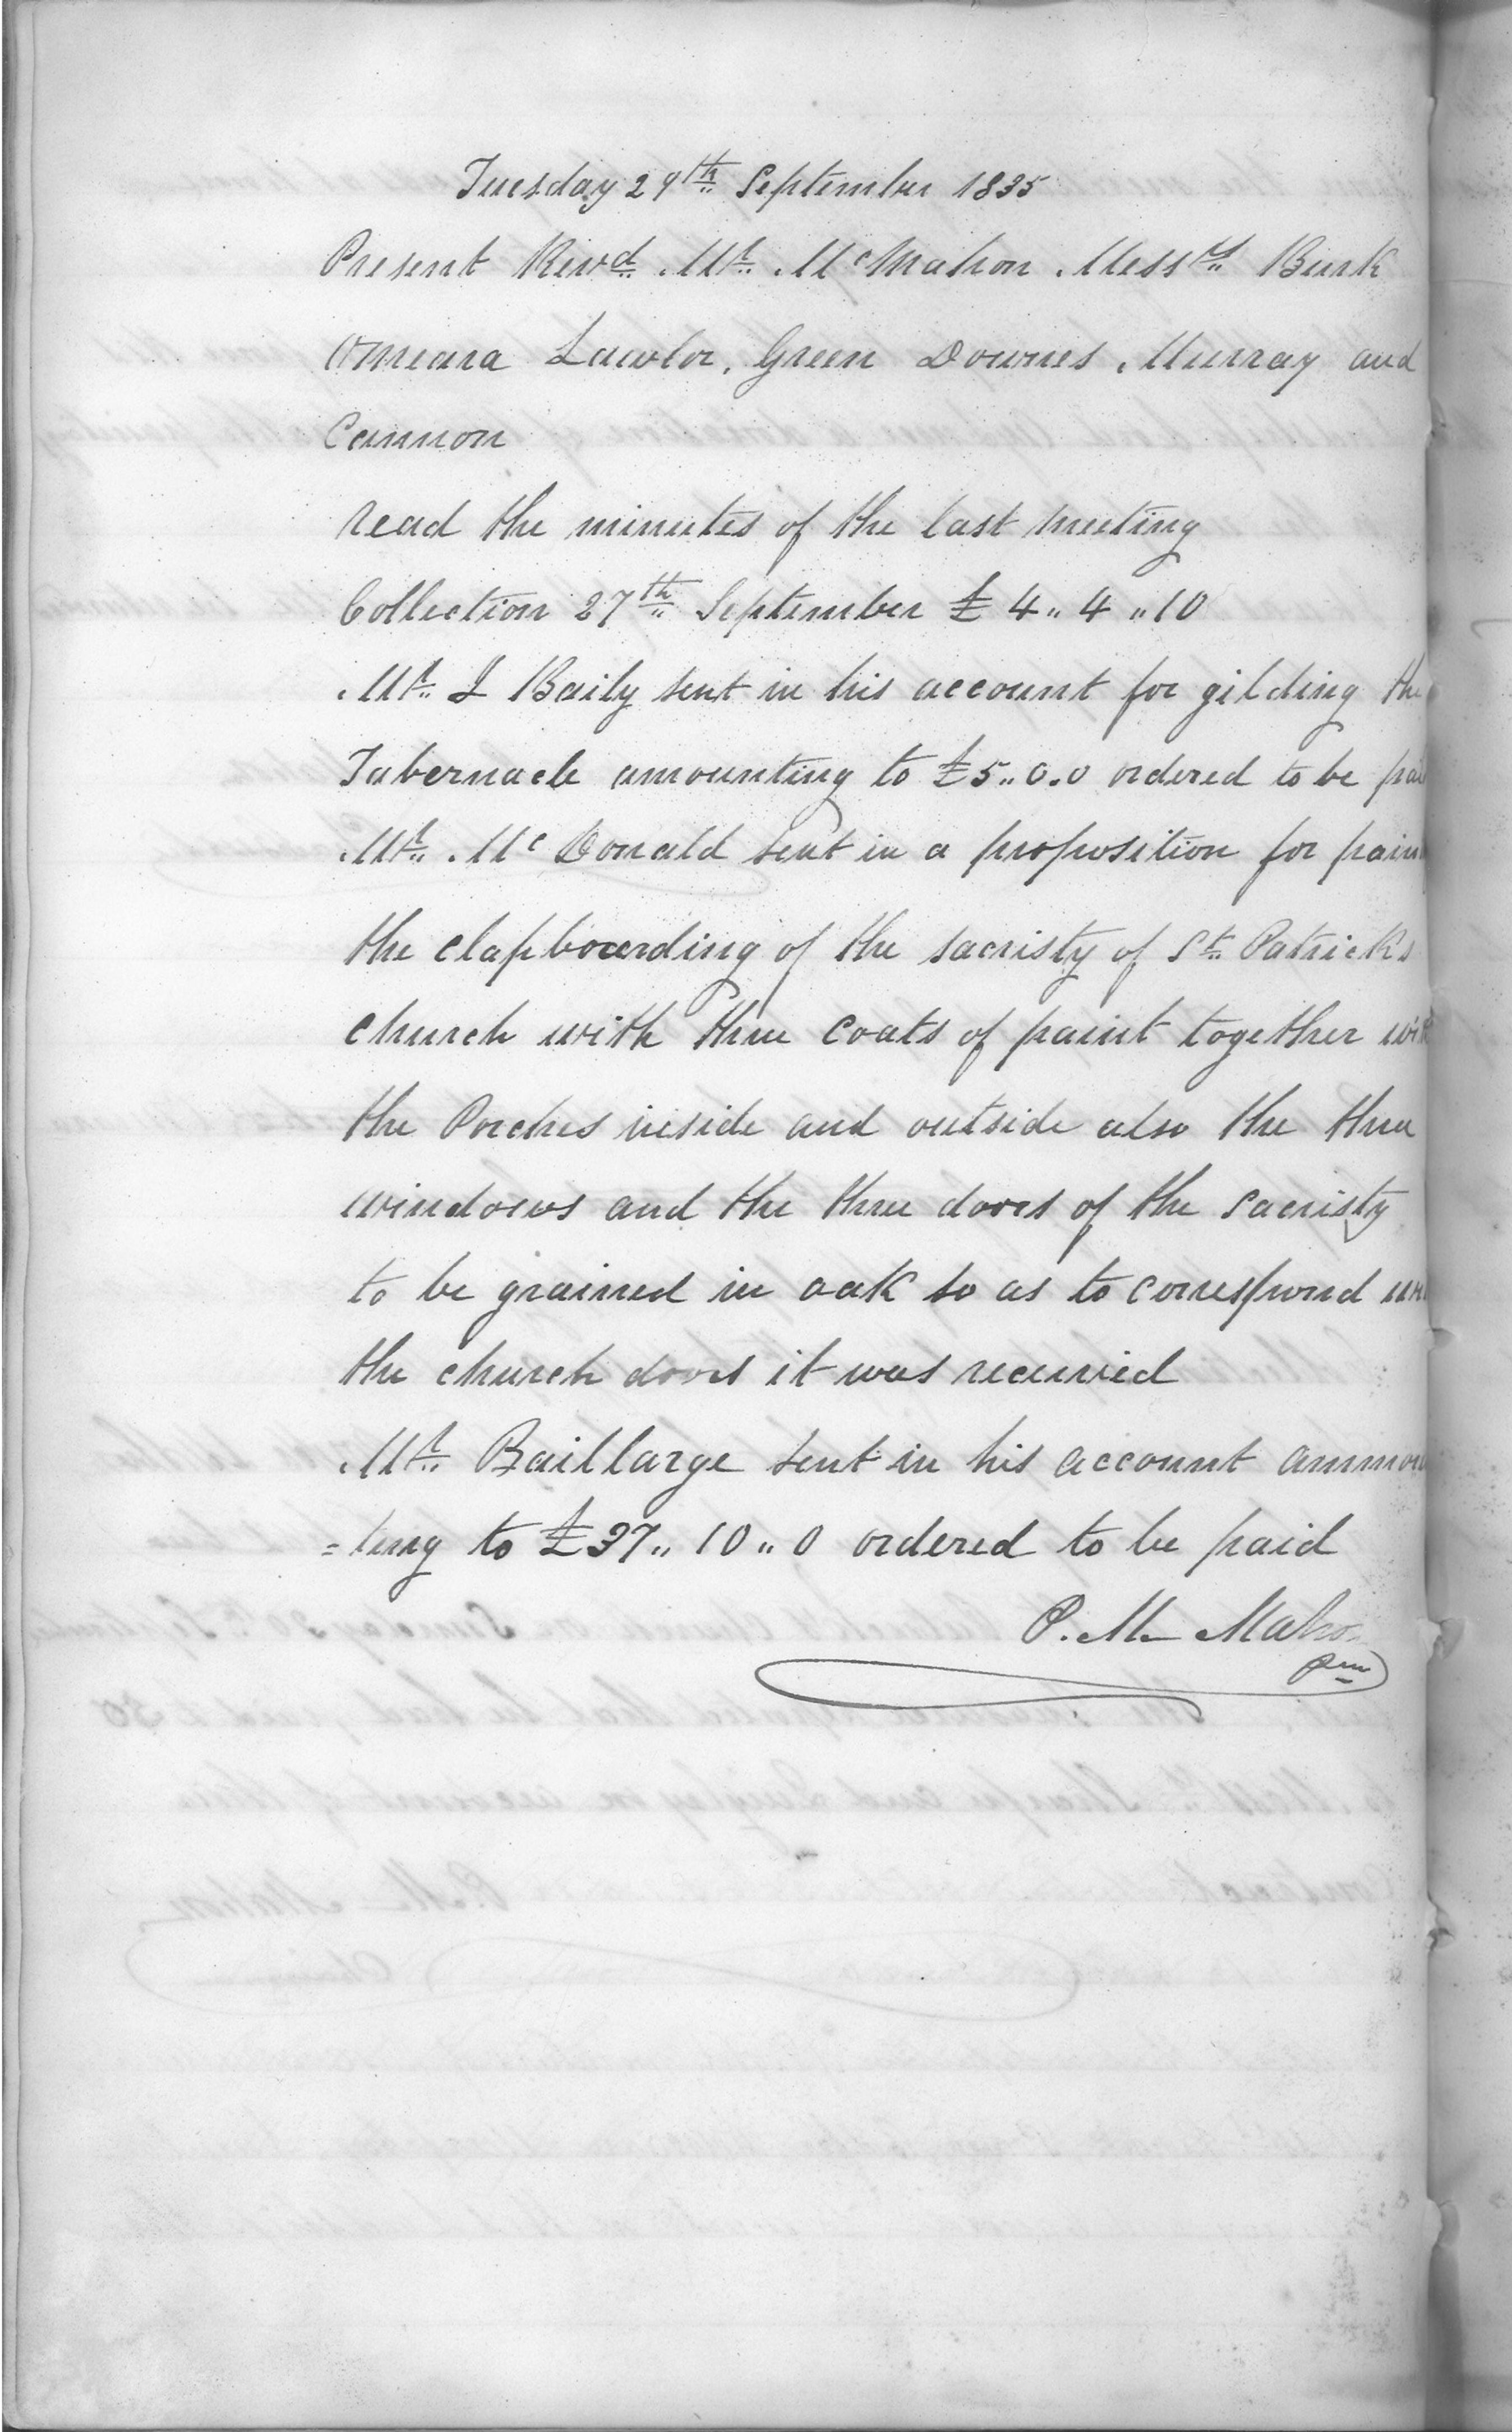 Tuesday 29th September 1835
Present Revd Mr McMahon Messrs Burk
Omeara Lawlor, Green Downes Murray and
Cannon
read the minutes of the last meeting
Collection 27th September £ 4 „ 4 „ 10
Mr J Baily sent in his account for gilding the
Tabernacle amounting to £5 „ 0 . 0 ordered to be pai
Mr McDonald sent in a proposition for pain
the clapboarding of the sacristy of St Patricks
church with three coats of paint together wit
the Porches inside and outside also the three
windows and the three doors of the sacristy
to be grained in oak so as to correspond wi
the church doors it was received
Mr Baillarge sent in his account ammou
=ting to £37 „ 10 „ 0 ordered to be paid
P. Mc Mahon